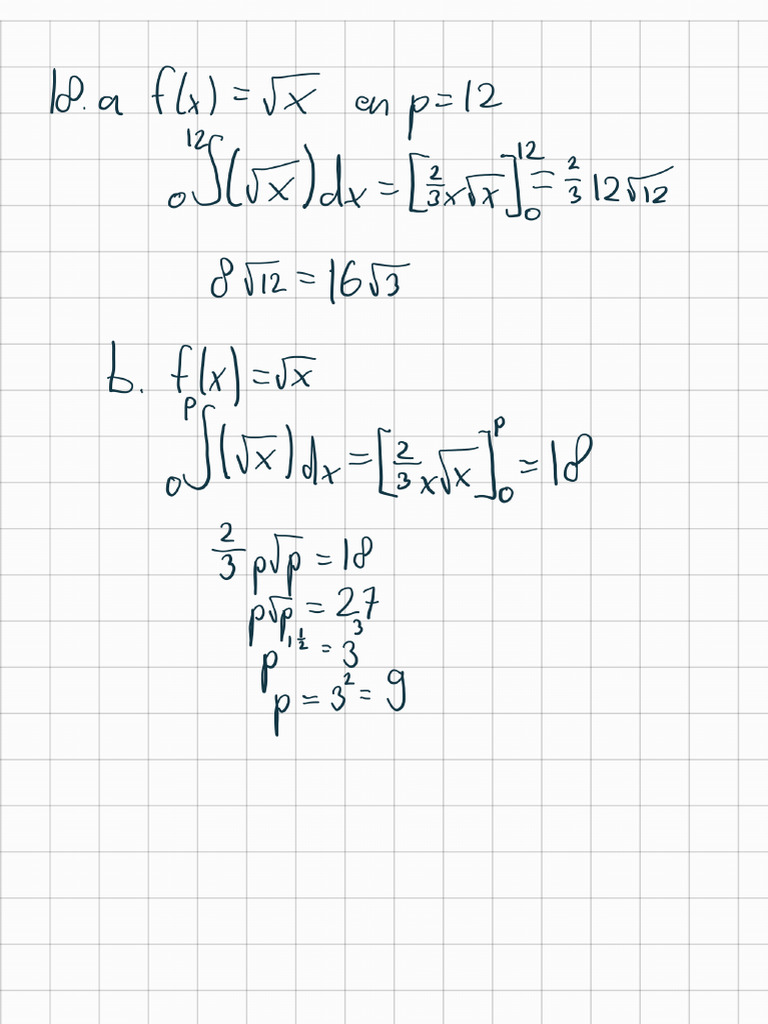 18. a f(x) = √x en p = 12
₀∫¹²(√x)dx = [2/3 x√x]₀¹² = 2/3 12√12
8√12 = 16√3
b. f(x) = √x
₀∫ᵖ(√x)dx = [2/3 x√x]₀ᵖ = 18
2/3 p√p = 18
p√p = 27
p^(1 1/2) = 3³
p = 3² = 9